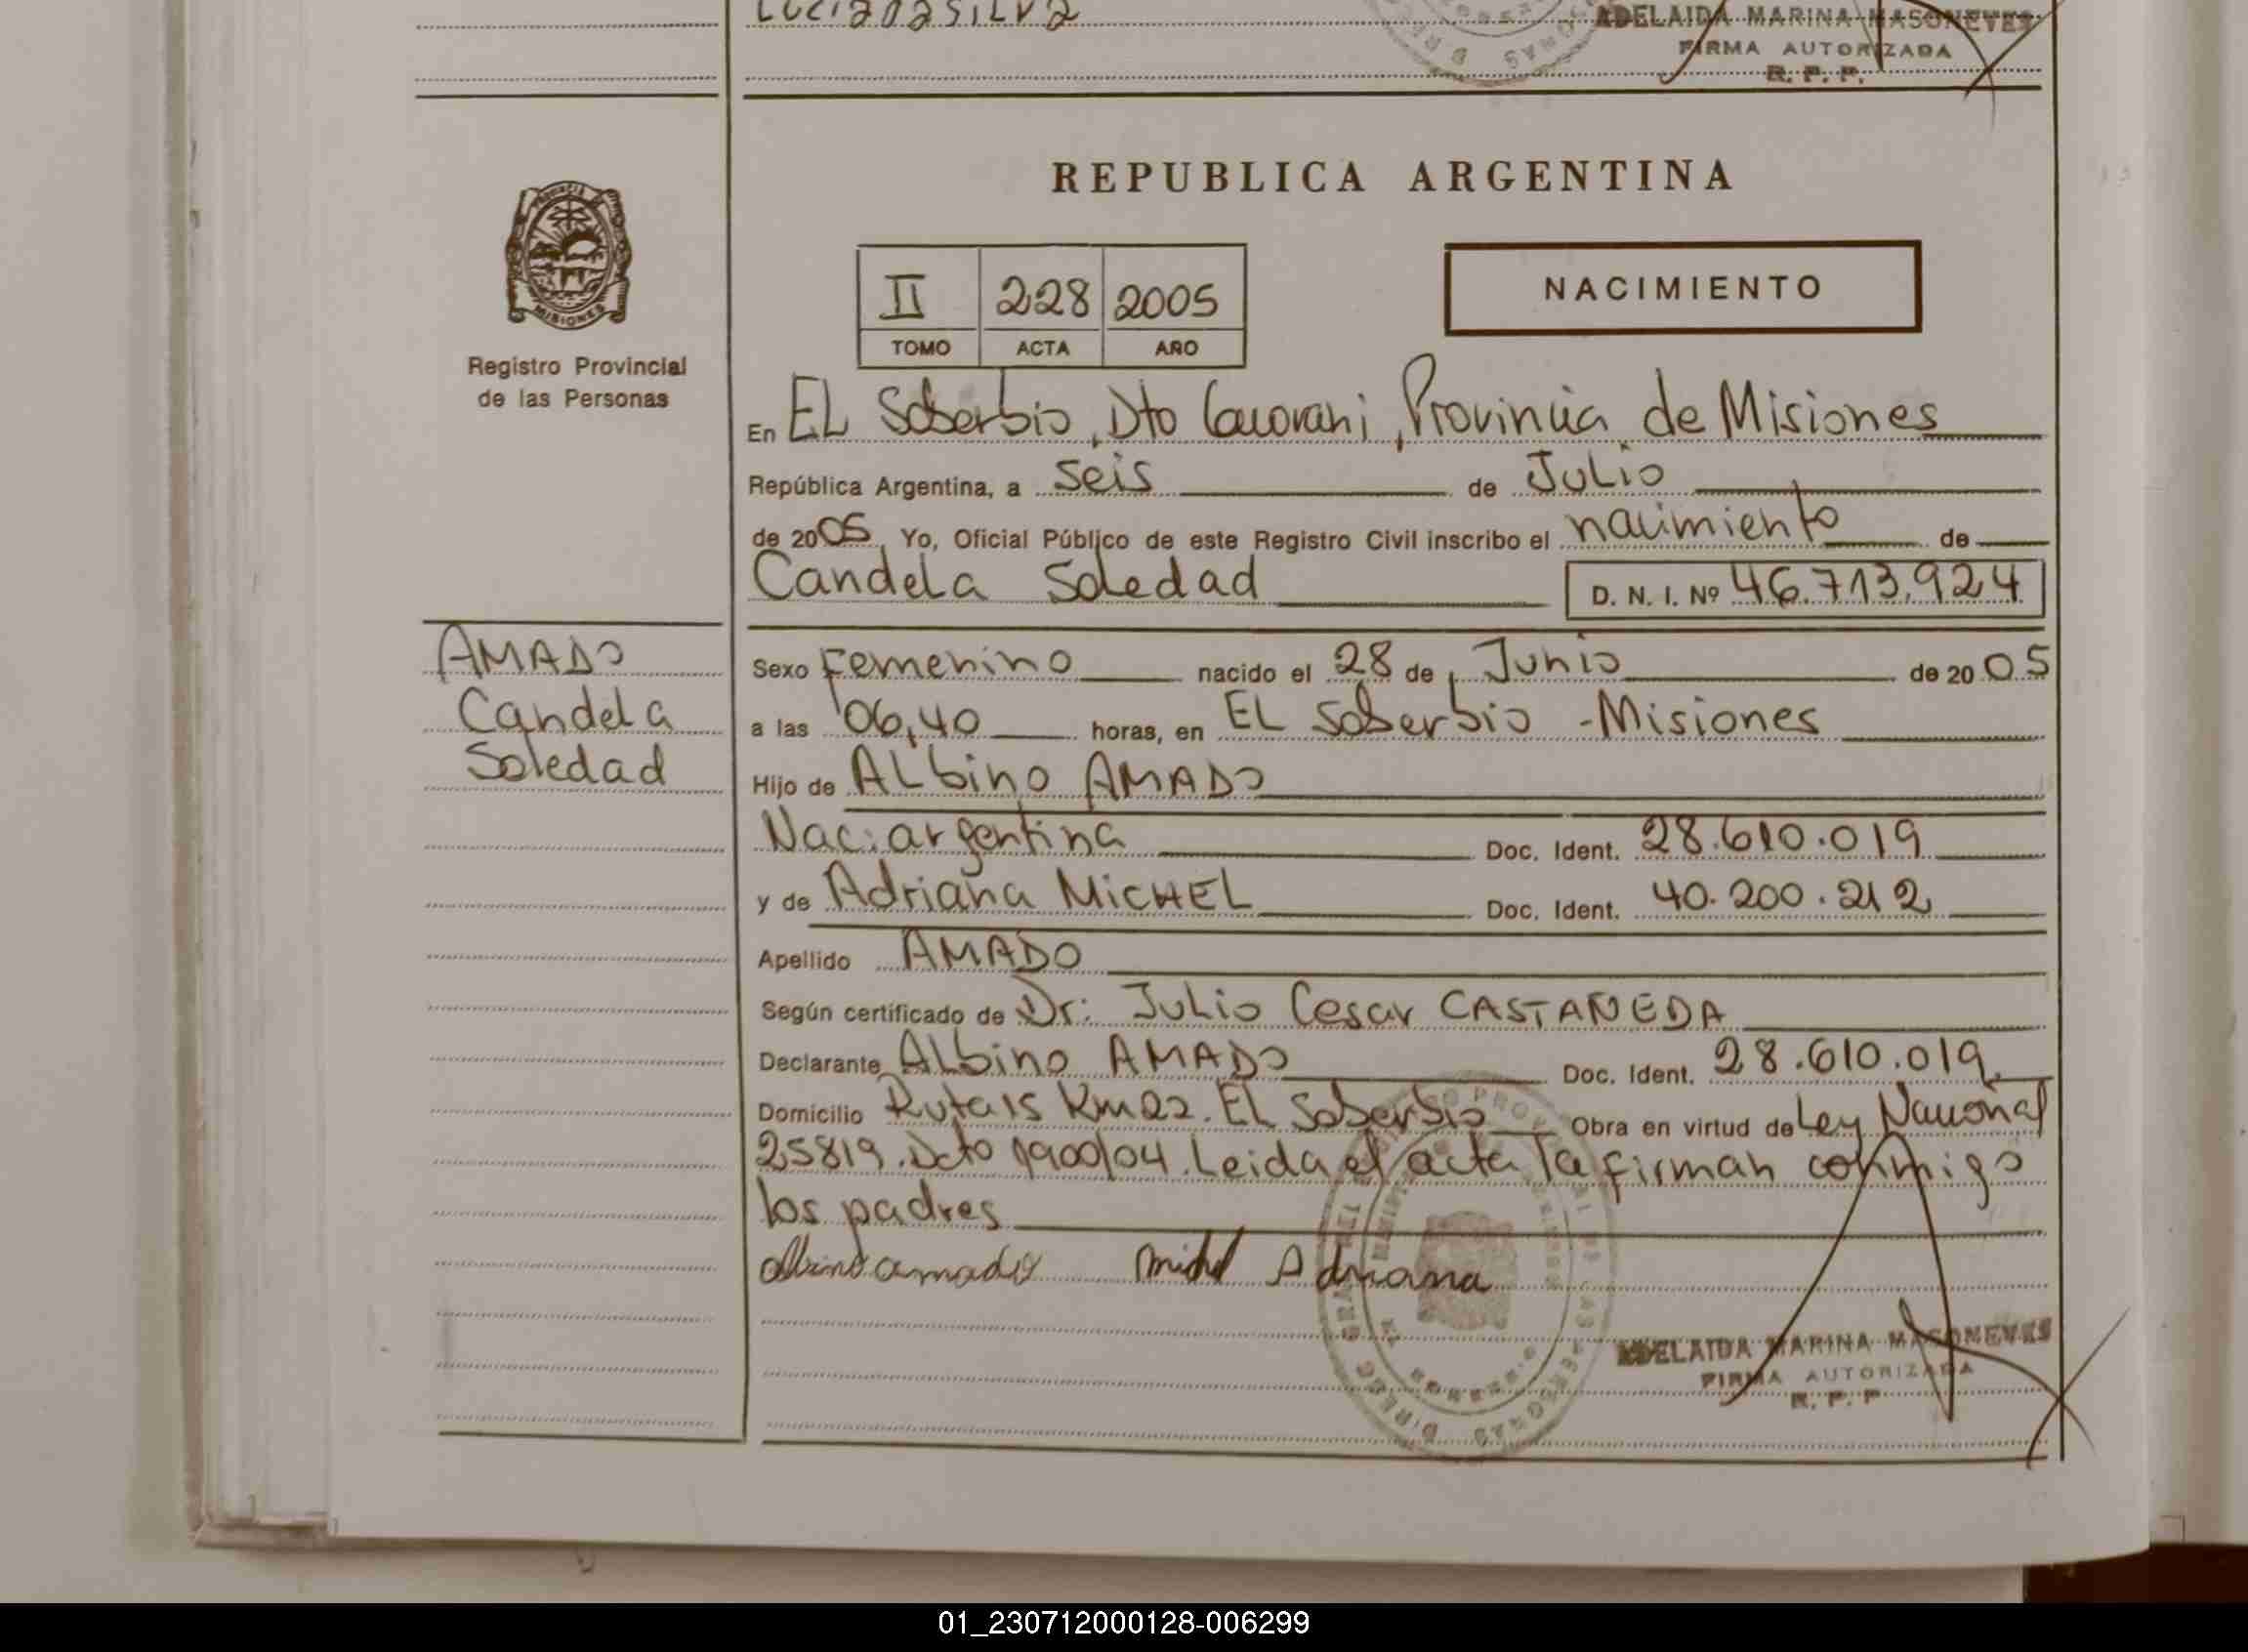 Luciana da Silva
ADELAIDA MARINA MASONEVES
FIRMA AUTORIZADA
R. P. P.
REPUBLICA ARGENTINA
MISIONES
Registro Provincial
de las Personas
II 228 2005
TOMO ACTA AÑO
NACIMIENTO
En EL Soberbio, Dto Guarani, Provincia de Misiones
República Argentina, a seis de Julio
de 2005 Yo, Oficial Público de este Registro Civil inscribo el nacimiento de
Candela Soledad D. N. I. Nº 46.713.924
AMADO
Candela
Soledad
Sexo Femenino nacido el 28 de Junio de 2005
a las 06,40 horas, en EL Soberbio - Misiones
Hijo de ALbino AMADO
Nac: argentina Doc. Ident. 28.610.019
y de Adriana MICHEL Doc. Ident. 40.200.212
Apellido AMADO
Según certificado de Dr: Julio Cesar CASTAÑEDA
Declarante ALbino AMADO Doc. Ident. 28.610.019
Domicilio Ruta 15 Km 22. EL Soberbio Obra en virtud de Ley Nacional
25819. Dcto 1900/04. Leida el acta la firman conmigo
los padres
albino amado Michel Adriana
ADELAIDA MARINA MASONEVES
FIRMA AUTORIZADA
R. P. P
01_230712000128-006299